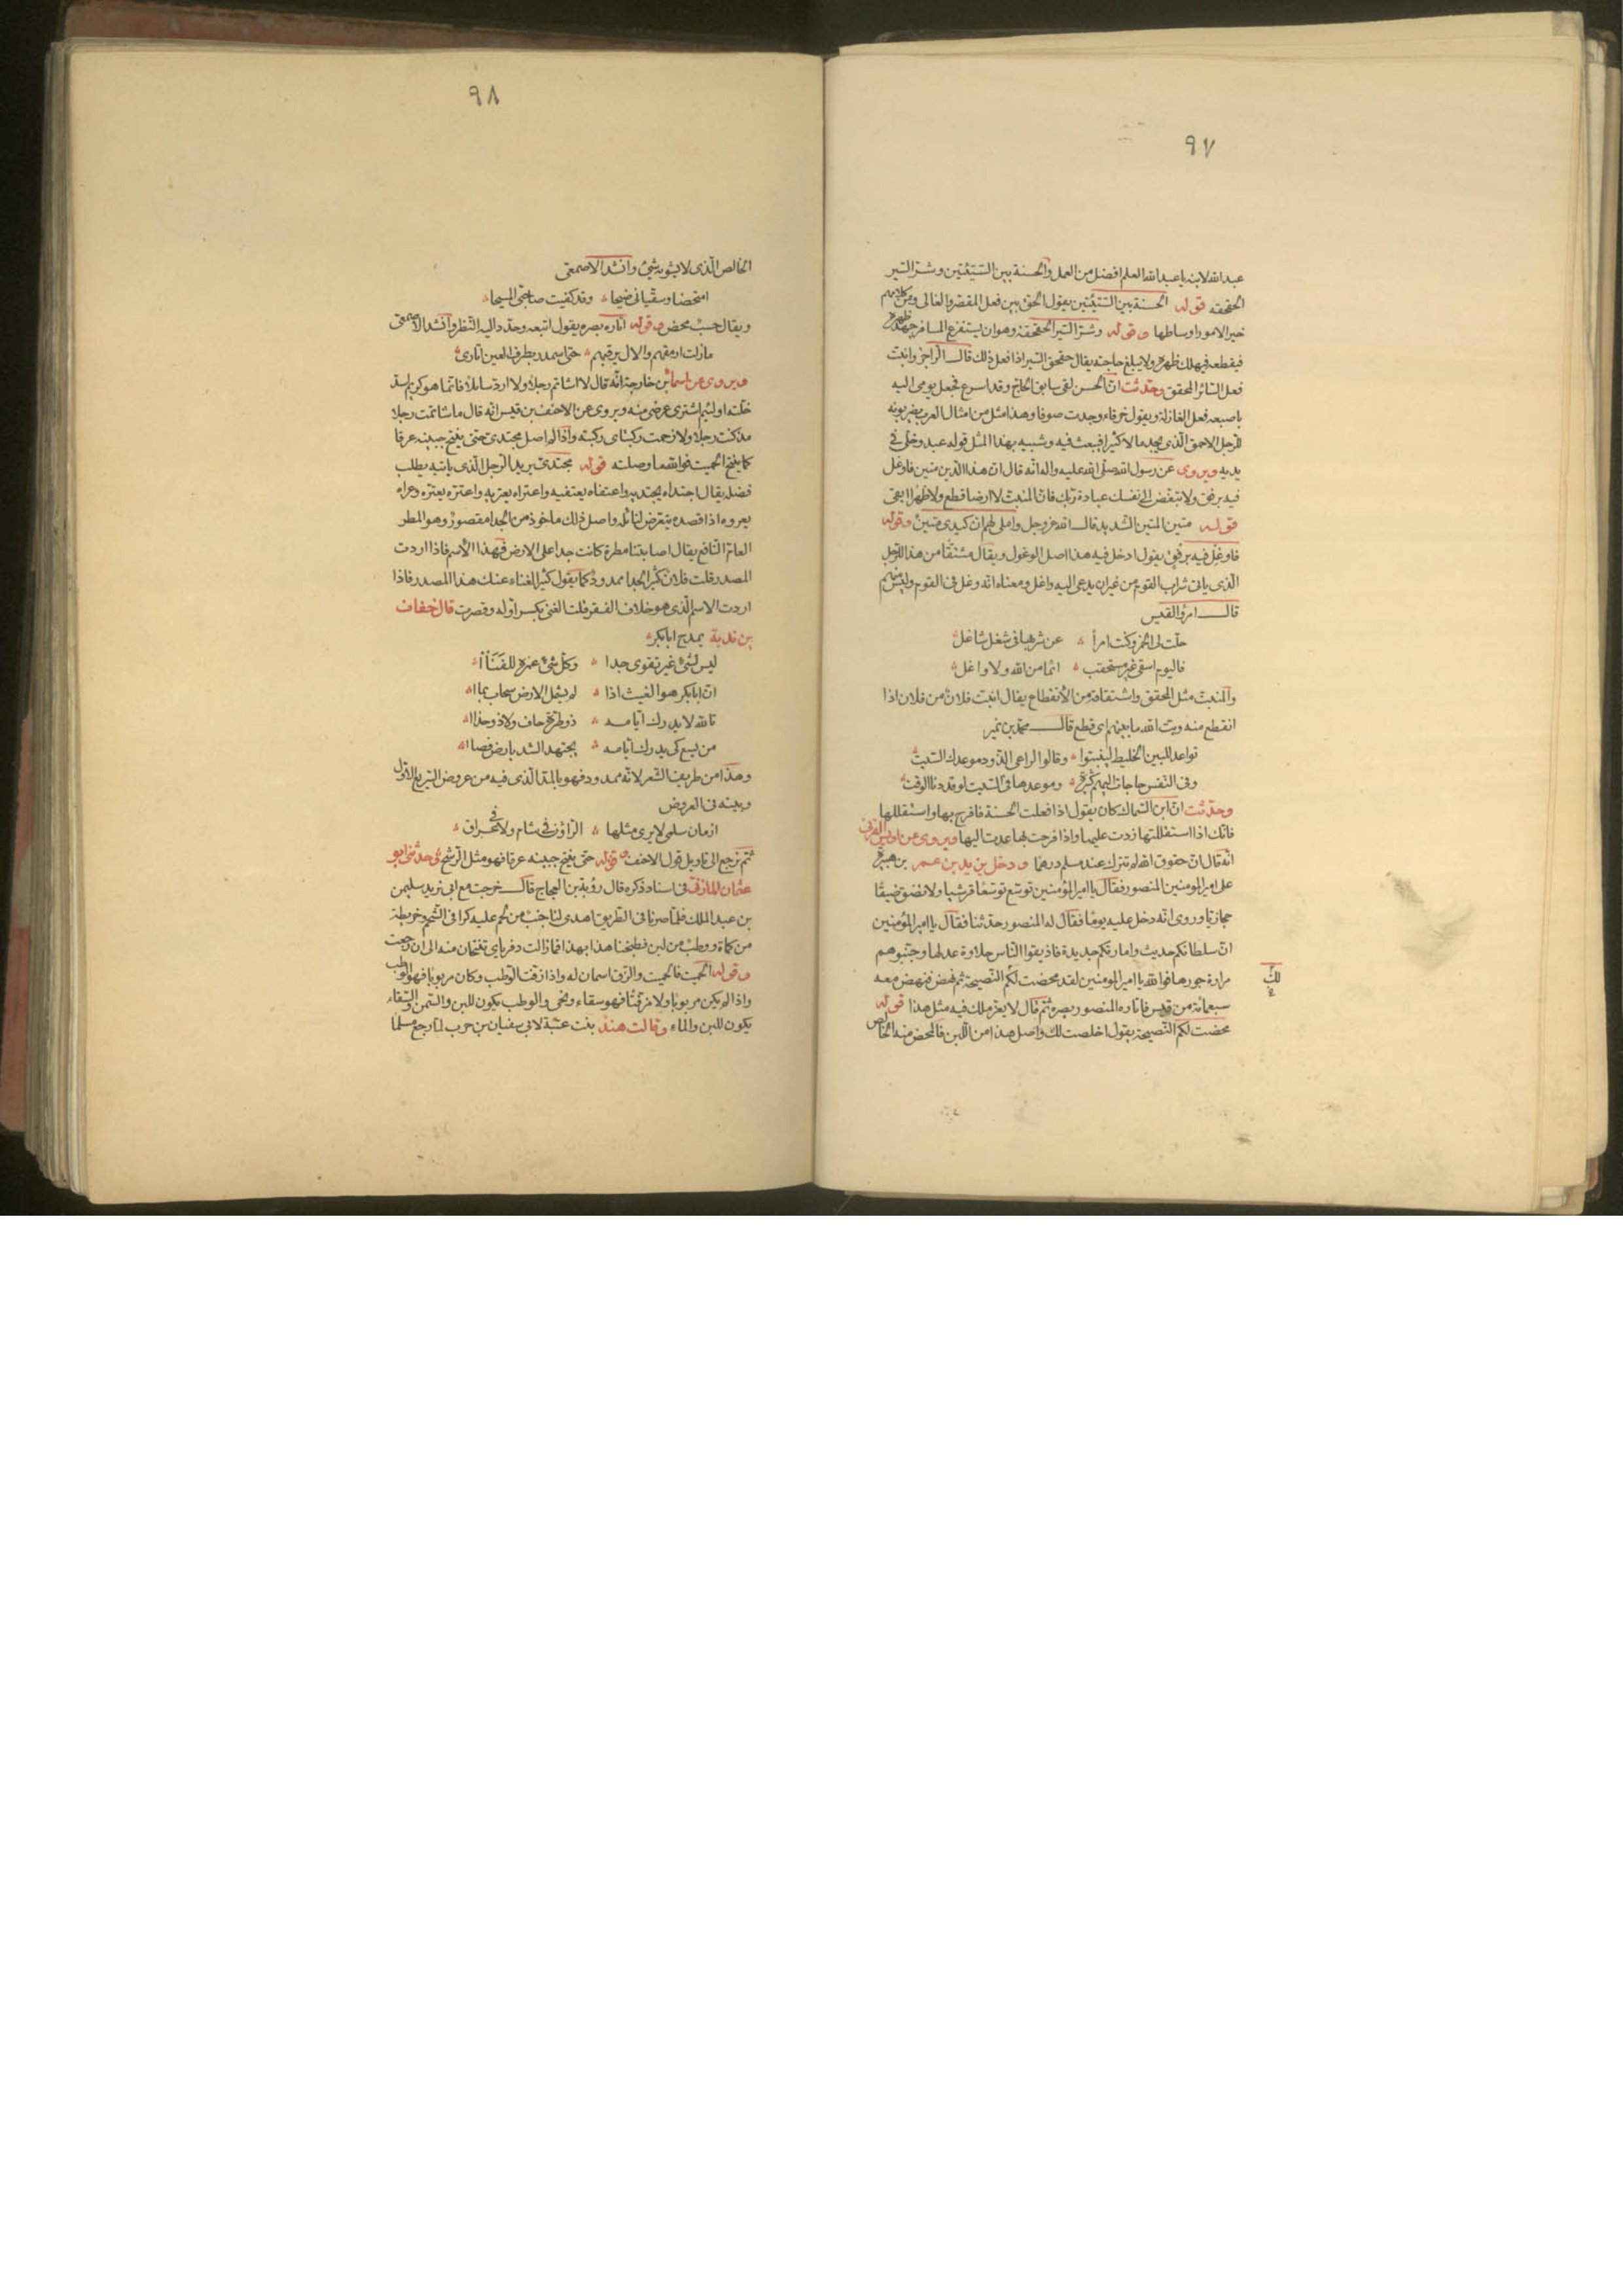 ٩٧
عبد الله لابنه يا عبد الله العلم افضل من العمل والحسنة بين السّيّئتين وشرّ السّير
الحقحقه قوله الحسنة بين السّيّئتين يقول الحقّ بين فعل المقصّر والغالى ومن كلامهم
خير الامور اوساطها وقوله وشرّ السّير الحقحقة وهو ان يستفرغ المسافر جهد ظهره
فيقطعه فيهلك ظهره ولا يبلغ حاجته يقال حقحق السّير اذا فعل ذلك قال الرّاجز وانبت
فعل السّائر المحقحق وحدّثت انّ الحسن لقى سابق الحاجّ وقد اسرع فجعل يومى اليه
باصبعه فعل الغازلة ويقول خرقاء وجدت صوفا وهذا مثل من امثال العرب يضربونه
للرّجل الاحمق الّذى يجد مالا كثيرا فيعيث فيه وشبيه بهذا المثل قوله عبد وخلّى فى
يديه ويروى عن رسول الله صلّى الله عليه واله انّه قال انّ هذا الدّين متين فاوغل
فيه برفق ولا تبغّض الى نفسك عبادة ربّك فانّ المنبتّ لا ارضا قطع ولا ظهرا ابقى
قوله متين المتين الشّديد قال الله عزّ وجل واملى لهم ان كيدى متين وقوله
فاوغل فيه برفق يقول ادخل فيه هذا اصل الوغول ويقال مشتقّا من هذا للرّجل
الّذى ياتى شراب القوم من غير ان يدعى اليه واغل ومعناه انّه وغل فى القوم وليس منهم
قال امرؤ القيس
حلّت لى الخمر وكنت امرأ عن شربها فى شغل شاغل
فاليوم اسقى غير مستحقب اثما من الله ولا واغل
والمنبتّ مثل المحقحق واشتقاقه من الأنقطاع يقال انبتّ فلان من فلان اذا
انقطع منه وبتّ الله ما بينهم اى قطع قال محمّد بن نمير
تواعد للبين الخليط لينبتوا وقالوا لراعى الذّود موعدك السّبت
وفى النّفس حاجات اليهم كثيرة وموعدها فى السّبت لو قد دنا الوقت
وحدّثت انّ ابن السّماك كان يقول اذا فعلت الحسنة فافرح بها واستقللها
فانّك اذا استقللتها زدت عليها واذا فرحت بها عدت اليها ويروى عن اويس القرنى
انّه قال انّ حقوق الله لم تترك عند مسلم درهما ودخل يزيد بن عمر بن هبيرة
على امير المومنين المنصور فقال يا امير المؤمنين توسّع توسّعا قرشيا ولا تضق ضيقا
حجازيّا وروى انّه دخل عليه يوما فقال له المنصور حدّثنا فقال يا امير المؤمنين
انّ سلطانكم حديث وامارتكم جديدة فاذيقوا النّاس حلاوة عدلها وجنّبوهم
مرارة جورها فوالله يا امير المومنين لقد محضت لكم النّصيحة ثم نهض فنهض معه
لك
سبعمائة من قيس فاتاره المنصور بصره ثمّ قال لا يعزّ ملك فيه مثل هذا قوله
محضت لكم النّصيحة يقول اخلصت لك واصل هذا من اللّبن فالمحض منه الخالص
٩٨
الخالص الّذى لا يشوبه شىء وانشد الاصمعى
امتحضا وسقّيانى ضيحا وقد كفيت صاحبىّ الميحا
ويقال حسب محض وقوله اتاره بصره يقول اتبعه وحدّد اليه النّظر وانشد الاصمعى
مازلت ارمقهم والال يرفعهم حتى اسمدرّ بطرف العين اتارى
ويروى عن اسماء بن خارجة انّه قال لا اشاتم رجلا ولا اردّ سائلا فانّما هو كريم اسدّ
خلّته او لئيم اشترى عرضى منه ويروى عن الاحنف بن قيس انّه قال ما شاتمت رجلا
مذ كنت رجلا ولا زحمت ركبتاى ركبتيه واذا لم اصل مجتدىّ حتى ينتح جبينه عرقا
كما ينتح الحميت فوالله ما وصلته قوله مجتدىّ يريد الرّجل الّذى ياتيه يطلب
فضله يقال اجتداه يجتديه واعتفاه يعتفيه واعتراه يعتريه واعترّه يعترّه وعراه
يعروه اذا قصده يتعرّض لنائله واصل ذلك ماخوذ من الجدا مقصور وهو المطر
العامّ النّافع يقال اصابتنا مطرة كانت جدا على الارض فهذا الأسم فاذا اردت
المصدر قلت فلان كثير الجداء ممدود كما يقول كثير الغناء عنك هذا المصدر فاذا
اردت الاسم الّذى هو خلاف الفقر قلت الغنى بكسر اوّله وقصرت قال خفاف
بن ندبة يمدح ابابكر
ليس لشىء غير تقوى جدا وكلّ شىء عمره للفناأ
انّ ابابكر هو الغيث اذا لم يشمل الارض سحاب بماا
تالله لا يدرك ايّامه ذو طرّة حاف ولا ذو حذاا
من يسع كى يدرك ايّامه يجتهد الشدّ بارض فضاا
وهذا من طريف الشّعر لانّه ممدود فهو بالمدّ الّذى فيه من عروض السّريع الاوّل
وبيته فى العروض
ازمان سلمى لا يرى مثلها الرّاؤن فى شام ولا فى عراق
ثمّ نرجع الى تاويل قول الاحنف وقوله حتى ينتح جبينه عرقا فهو مثل الرّشح وحدثنى ابو
عثمان المازنىّ فى اسناد ذكره قال رؤبة بن العجاج قال خرجت مع ابى نريد سليمن
بن عبد الملك فلمّا صرنا فى الطّريق اهدى لنا جنب من لحم عليه كرافى الشّحم وخريطة
من كماة ووطب من لبن فطبخنا هذا بهذا فما زالت ذفرياى تنتحان منه الى ان رجعت
وقوله الحميت فالحميت والزّق اسمان له واذا زفّت الوطب وكان مربوبا فهو الوطب
واذا لم يكن مربوبا ولا مزفّتا فهو سقاء ونحى والوطب يكون للبن والسّمن والسّقاء
يكون للبن والماء وقالت هند بنت عتبة لابى سفيان بن حرب لمّا رجع مسلما